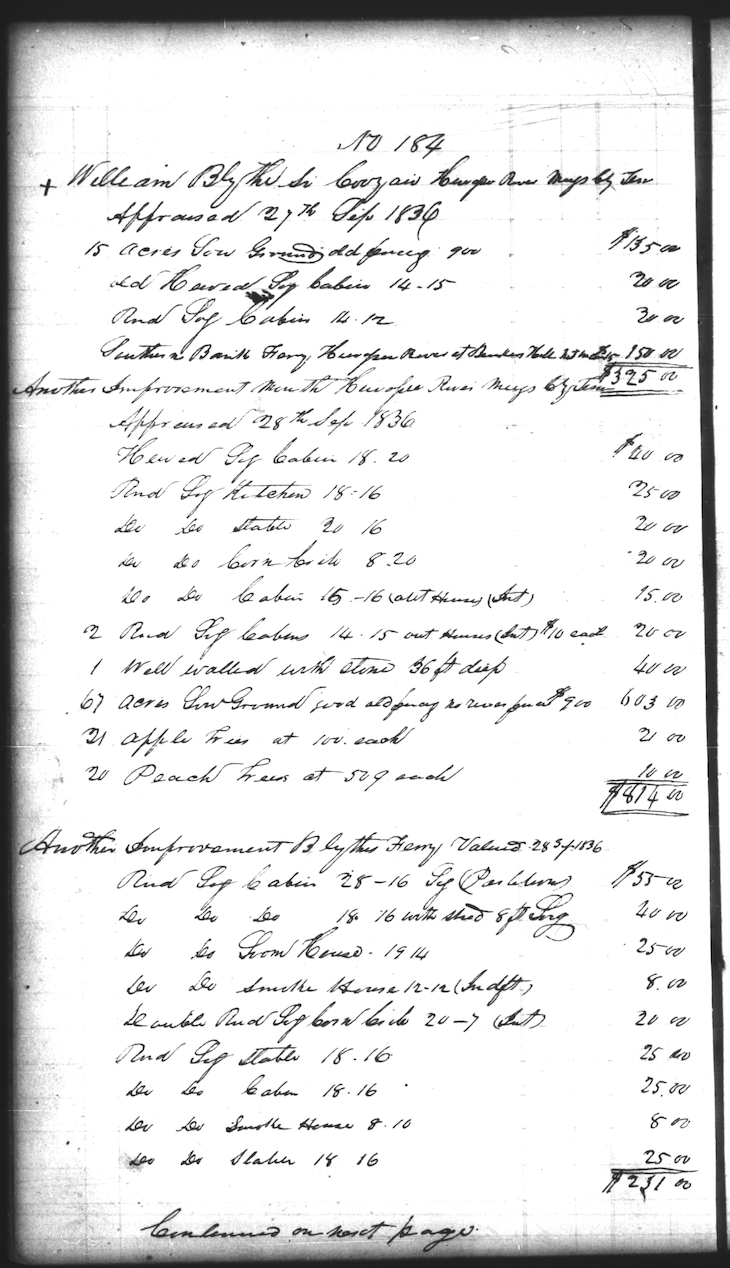 No 184
+ William Blythe Sr Hiwassee River Meigs Cty Ten
Appraised 27th Sep 1836
15 acres Low Ground old fencing 900 $135 00
old Hewed Log Cabin 14-15 20 00
Rnd Log Cabin 14.12 20 00
Southern Bank Ferry River at 150 00
$325 00
Another Improvement Mouth River Meigs Cty Tenn
Appraised 28th Sep 1836
Hewed Log Cabin 18.20 $40 00
Rnd Log Kitchen 18-16 25 00
Do Do stable 20 16 20 00
Do Do Corn Crib 8.20 20 00
Do Do Cabin 16-16 (out House) (Int) 15.00
2 Rnd Log Cabins 14.15 out Houses (Int) $10 each 20 00
1 Well walled with stone 36 ft deep 40 00
67 acres Low Ground good old fencing no $900 603 00
21 apple trees at 100. each 21 00
20 Peach trees at 50¢ each 10 00
$814 00
Another Improvement Blythes Ferry Valued 28 Sep 1836
Rnd Log Cabin 28-16 Log (Partition) $55 00
Do Do Do 18. 16 with shed 8 ft 40 00
Do Do Loom House. 19 14 25 00
Do Do Smoke House 12-12 (Indft.) 8.00
Double Rnd Log Corn Crib 20-7 (Int) 20 00
Rnd Log stable 18.16 25 00
Do Do Cabin 18.16 25.00
Do Do Smoke House 8.10 8 00
Do Do Stable 18 16 25 00
$231 00
Continued on next page